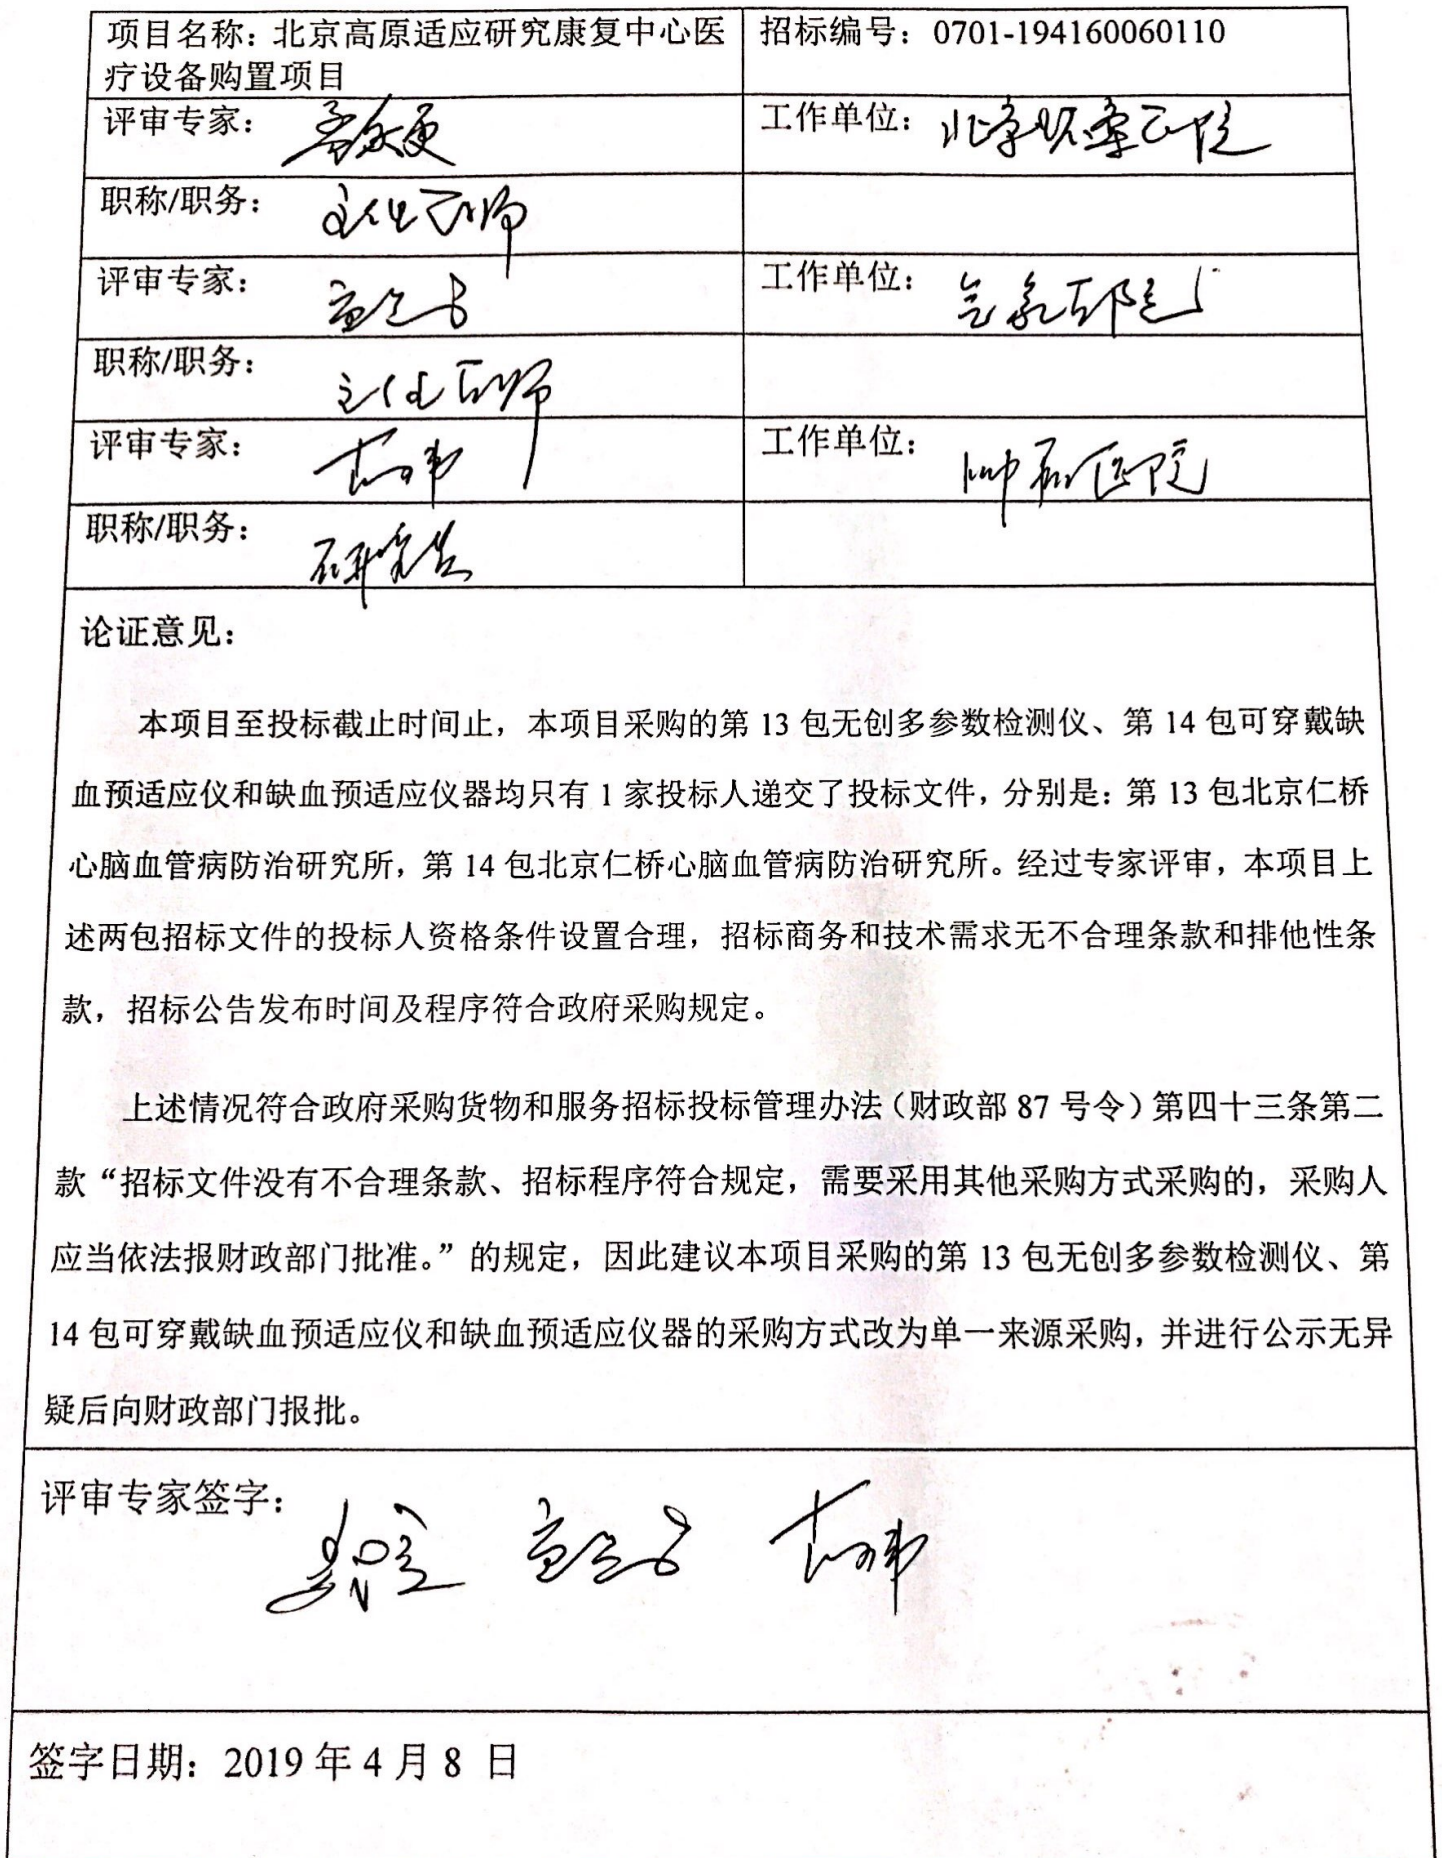 项目名称：北京高原适应研究康复中心医
疗设备购置项目
招标编号：0701-194160060110
评审专家：
工作单位：
职称/职务：主任医师
评审专家：
工作单位：
职称/职务：主任医师
评审专家：
工作单位：医院
职称/职务：研究员
论证意见：
本项目至投标截止时间止，本项目采购的第 13 包无创多参数检测仪、第 14 包可穿戴缺
血预适应仪和缺血预适应仪器均只有 1 家投标人递交了投标文件，分别是：第 13 包北京仁桥
心脑血管病防治研究所，第 14 包北京仁桥心脑血管病防治研究所。经过专家评审，本项目上
述两包招标文件的投标人资格条件设置合理，招标商务和技术需求无不合理条款和排他性条
款，招标公告发布时间及程序符合政府采购规定。
上述情况符合政府采购货物和服务招标投标管理办法（财政部 87 号令）第四十三条第二
款“招标文件没有不合理条款、招标程序符合规定，需要采用其他采购方式采购的，采购人
应当依法报财政部门批准。”的规定，因此建议本项目采购的第 13 包无创多参数检测仪、第
14 包可穿戴缺血预适应仪和缺血预适应仪器的采购方式改为单一来源采购，并进行公示无异
疑后向财政部门报批。
评审专家签字：
签字日期：2019 年 4 月 8 日